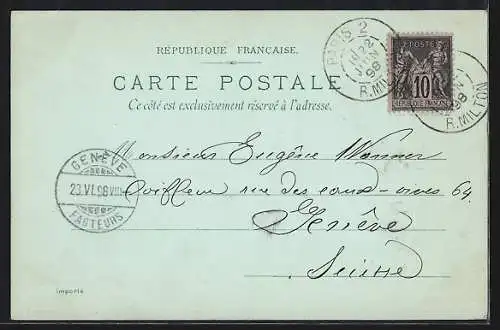 RÉPUBLIQUE FRANÇAISE.
CARTE POSTALE
Ce côté est exclusivement réservé à l'adresse.
PARIS 2
22
JUIN
98
R. MILTON
POSTE
10
98
R. MILTON
GENÈVE
23.VI.98 VIII
FACTEURS
Monsieur Eugène Wanner
Coiffeur rue des eaux-vives 64
Genève
Suisse
importé